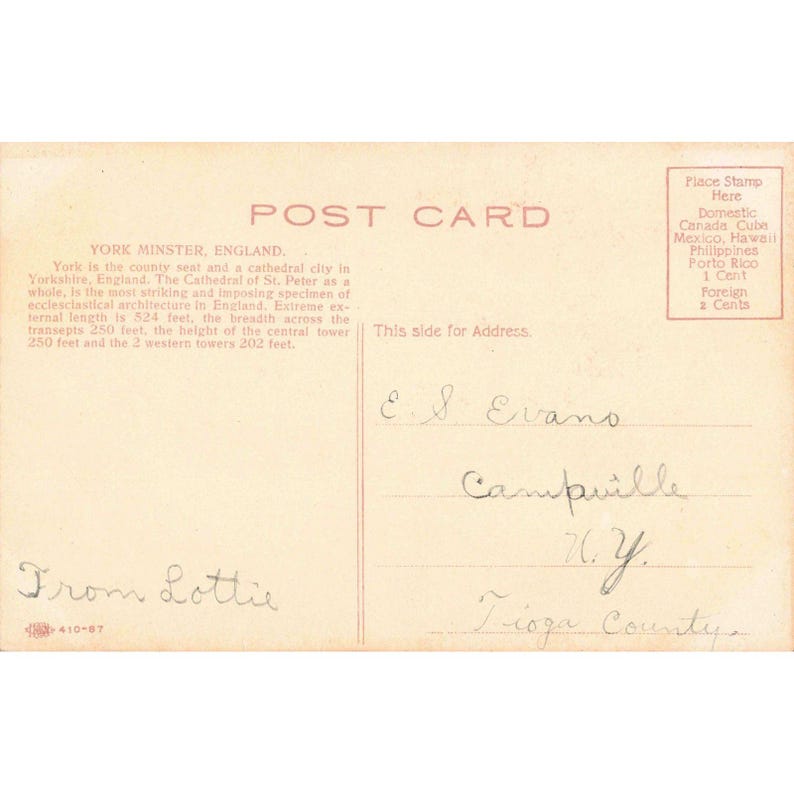 POST CARD
Place Stamp
Here
Domestic
Canada Cuba
Mexico, Hawaii
Philippines
Porto Rico
1 Cent
Foreign
2 Cents
YORK MINSTER, ENGLAND.
York is the county seat and a cathedral city in
Yorkshire, England. The Cathedral of St. Peter as a
whole, is the most striking and imposing specimen of
ecclesciastical architecture in England. Extreme ex-
ternal length is 524 feet, the breadth across the
transepts 250 feet, the height of the central tower
250 feet and the 2 western towers 202 feet.
This side for Address.
E. S. Evans
Campville
N. Y.
Tioga County.
From Lottie
410-87